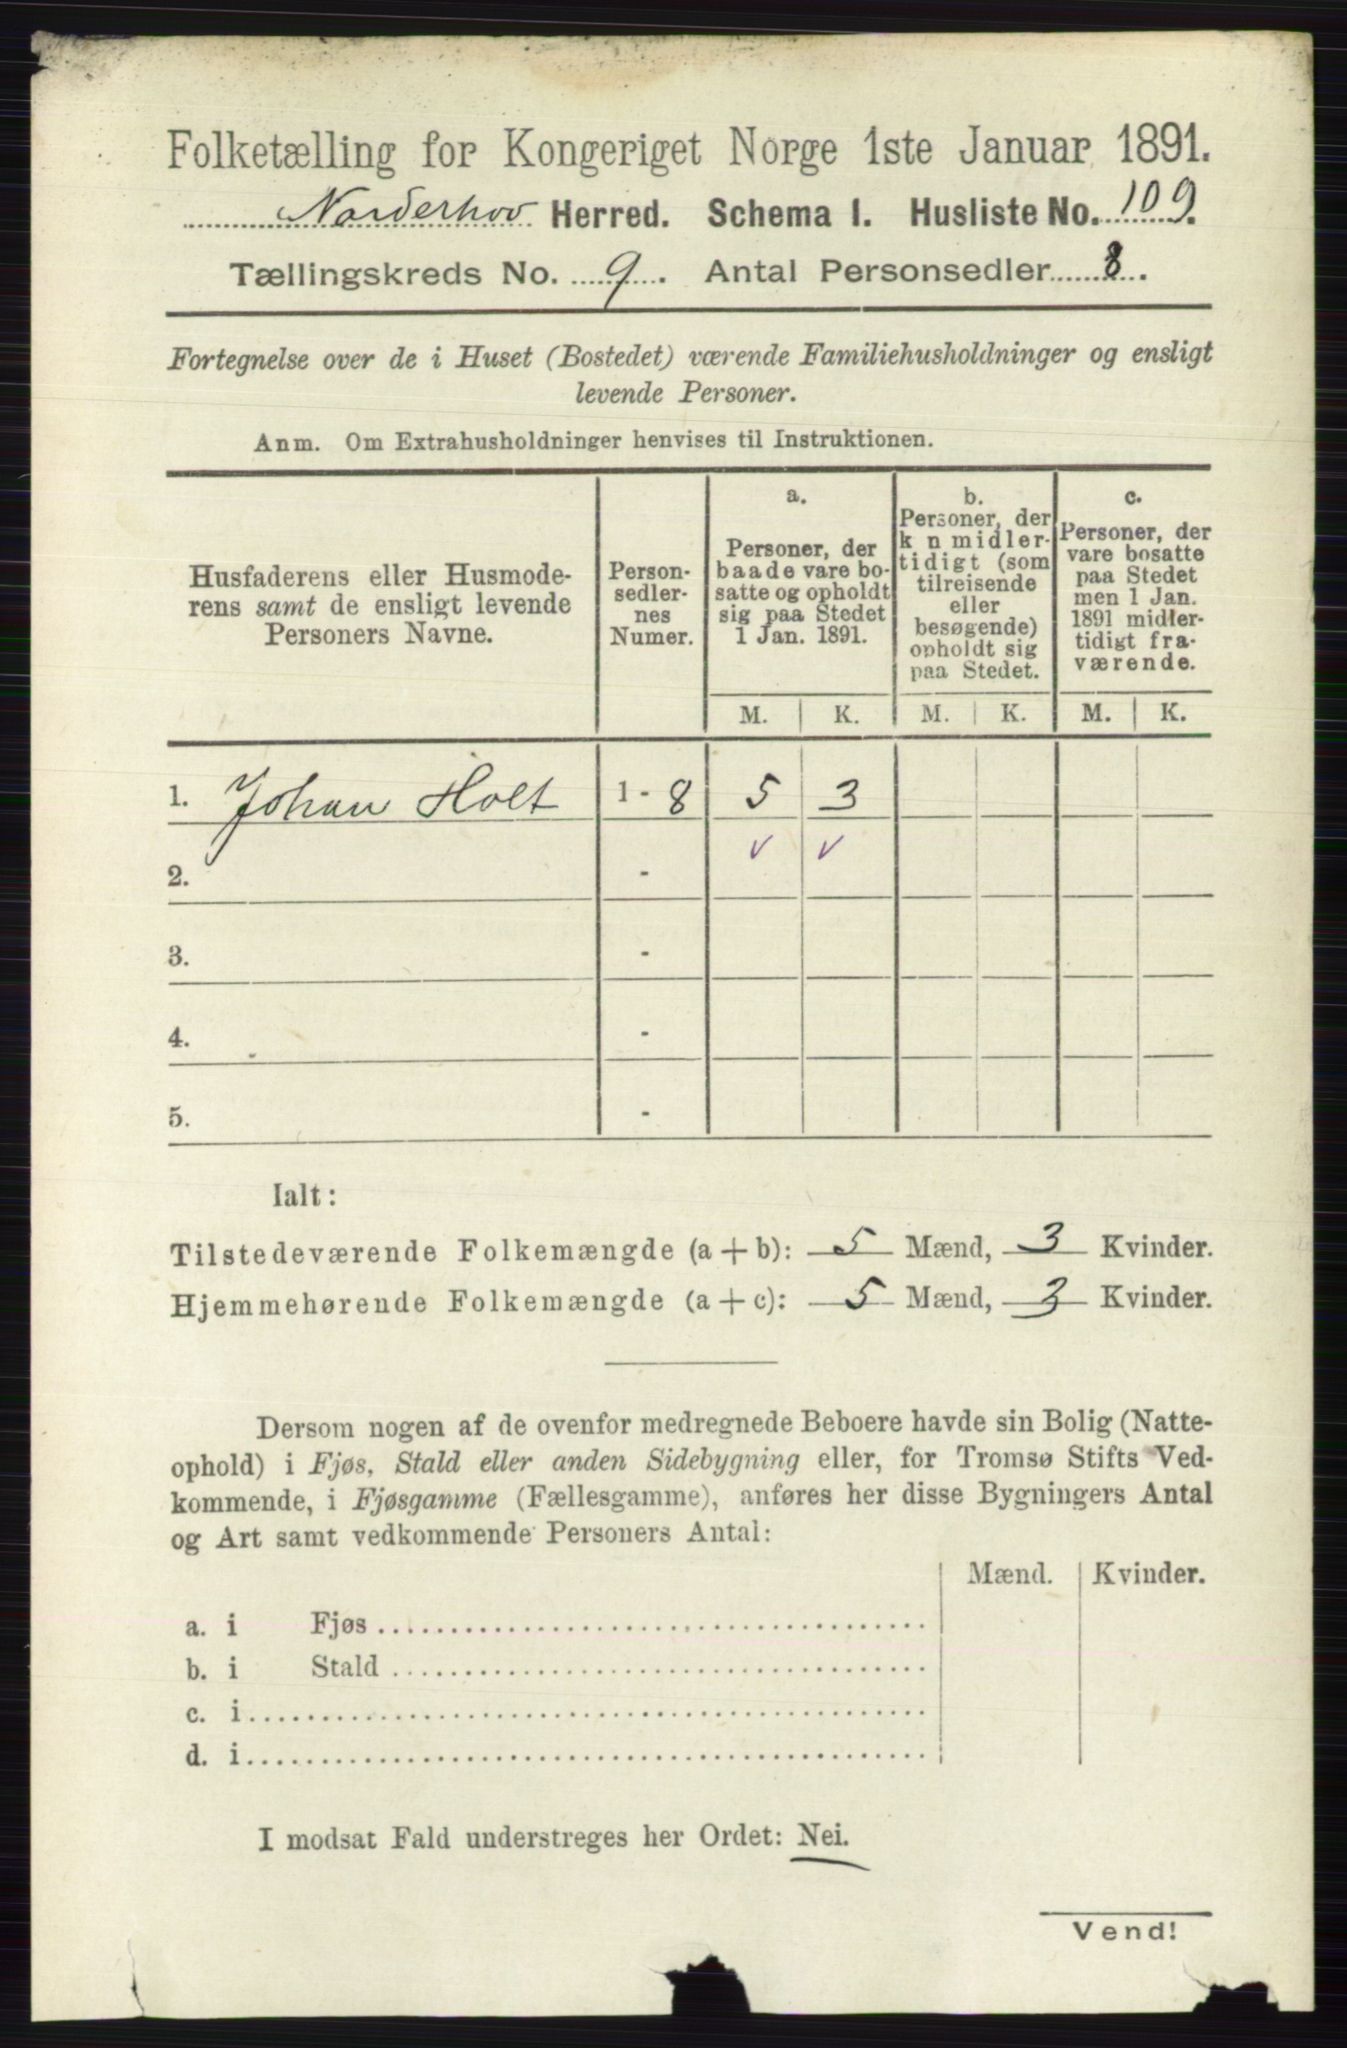 Folketælling for Kongeriget Norge 1ste Januar 1891.
Norderhov Herred. Schema I. Husliste No. 109.
Tællingskreds No. 9. Antal Personsedler 8.
Fortegnelse over de i Huset (Bostedet) værende Familiehusholdninger og ensligt
levende Personer.
Anm. Om Extrahusholdninger henvises til Instruktionen.
Husfaderens eller Husmode-
rens samt de ensligt levende
Personers Navne.
Person-
sedler-
nes
Numer.
a.
Personer, der
baade vare bo-
satte og opholdt
sig paa Stedet
1 Jan. 1891.
M. K.
b.
Personer, der
k n midler-
tidigt (som
tilreisende
eller
besøgende)
opholdt sig
paa Stedet.
M. K.
c.
Personer, der
vare bosatte
paa Stedet
men 1 Jan.
1891 midler-
tidigt fra-
værende.
M. K.
1. Johan Holt 1 - 8 5 3
2. - v v
3. -
4. -
5. -
Ialt:
Tilstedeværende Folkemængde (a + b): 5 Mænd, 3 Kvinder.
Hjemmehørende Folkemængde (a + c): 5 Mænd, 3 Kvinder.
Dersom nogen af de ovenfor medregnede Beboere havde sin Bolig (Natte-
ophold) i Fjøs, Stald eller anden Sidebygning eller, for Tromsø Stifts Ved-
kommende, i Fjøsgamme (Fællesgamme), anføres her disse Bygningers Antal
og Art samt vedkommende Personers Antal:
Mænd. Kvinder.
a. i Fjøs
b. i Stald
c. i
d. i
I modsat Fald understreges her Ordet: Nei.
Vend!